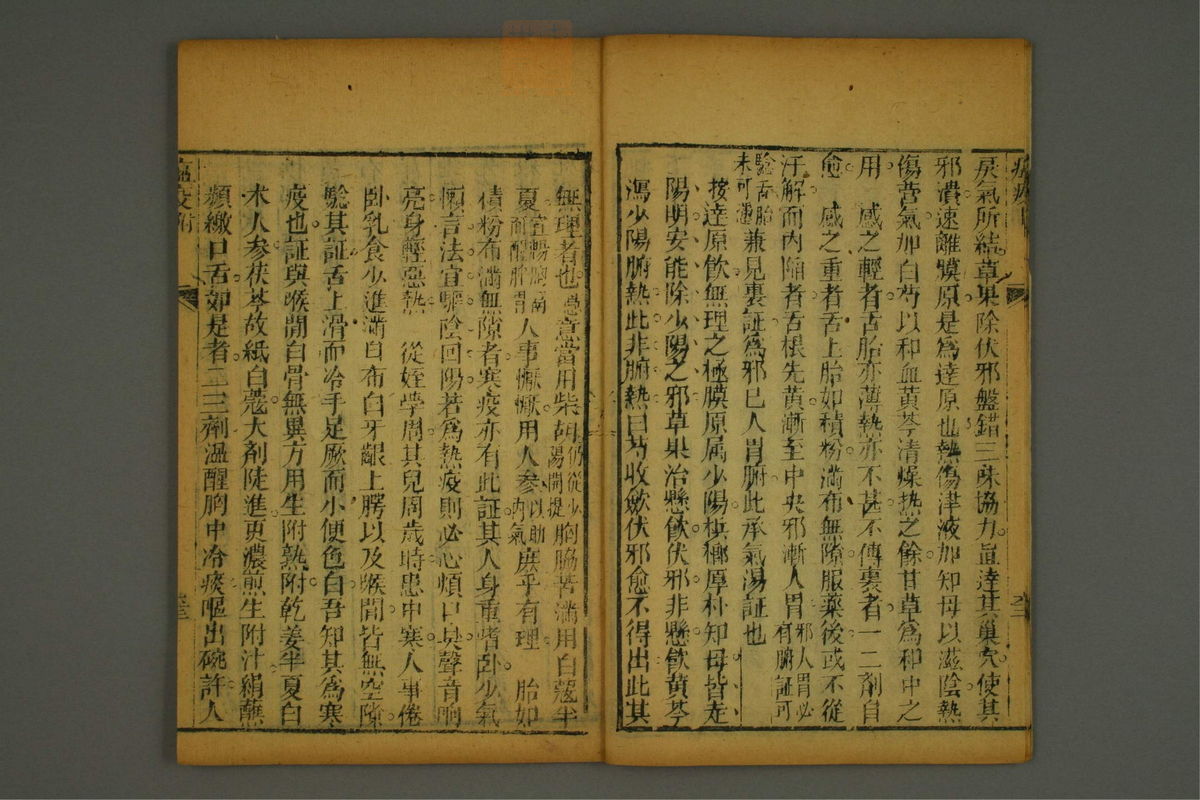 戾氣所結草果除伏邪盤錯三味協力直達其巢穴使其
邪潰速離膜原是為達原也熱傷津液加知母以滋陰熱
傷營氣加白芍以和血黃芩清燥熱之餘甘草為和中之
用　感之輕者舌胎亦薄熱亦不甚不傳裏者一二劑自
愈　感之重者舌上胎如積粉滿布無隙服藥後或不從
汗解而內陷者舌根先黃漸至中央邪漸入胃邪入胃必有腑証可
驗舌胎未可憑兼見裏証為邪已入胃腑此承氣湯証也
按達原飲無理之極膜原属少陽梹榔厚朴知母皆走
陽明安能除少陽之邪草果治懸飲伏邪非懸飲黃芩
瀉少陽腑熱此非腑熱白芍收歛伏邪愈不得出此其
無理者也愚意當用柴胡仍從少陽開提胸脇苦滿用白蔻半
夏宣暢胸膈而醒脾胃人事懨懨用人參以助內氣庶乎有理　胎如
積粉布滿無隙者寒疫亦有此証其人身重嗜卧少氣
懶言法宜驅陰回陽若為熱疫則必心煩口臭聲音响
亮身輕惡熱　從姪學周其兒周歲時患中寒人事倦
卧乳食少進滿口布白牙齦上腭以及喉間皆無空隙
驗其証舌上滑而冷手足厥而小便色白吾知其為寒
疫也証與喉間白骨無異方用生附熟附乾姜半夏白
朮人參茯苓故紙白蔻大劑陡進更濃煎生附汁絹蘸
頻繳口舌如是者二三劑溫醒胸中冷痰嘔出碗許人